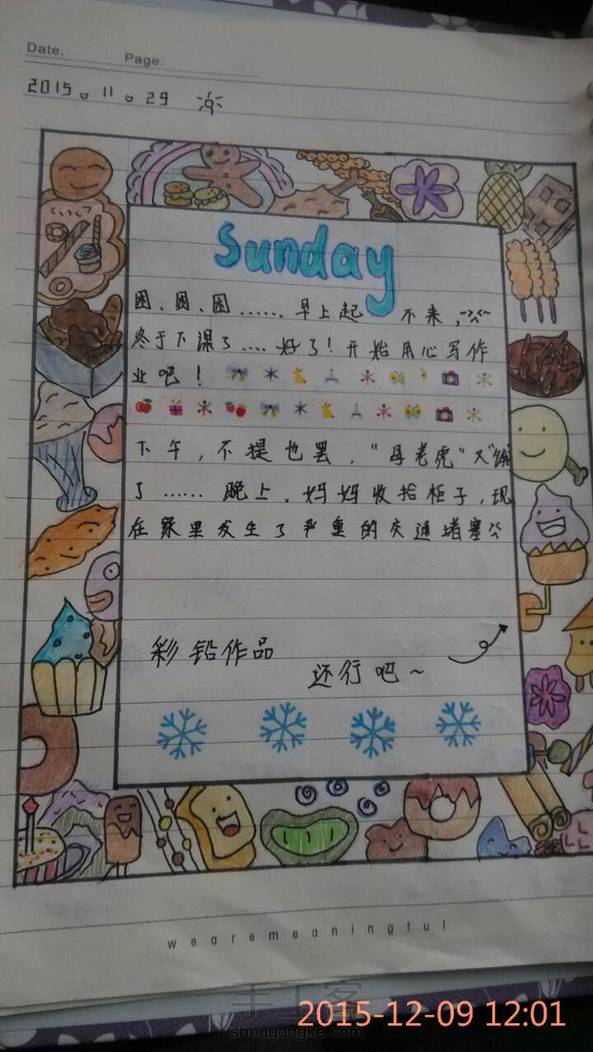 Date.
Page.
2015。11。29
Sunday
困、困、困……早上起不来,
终于下课了....好了!开始用心写作
业吧!
下午,不提也罢,"母老虎"大"
了……晚上,妈妈收拾柜子,现
在家里发生了严重的交通堵塞
彩铅作品
还行吧~
wearemeaningful
手工客
shougongke.com
2015-12-09 12:01